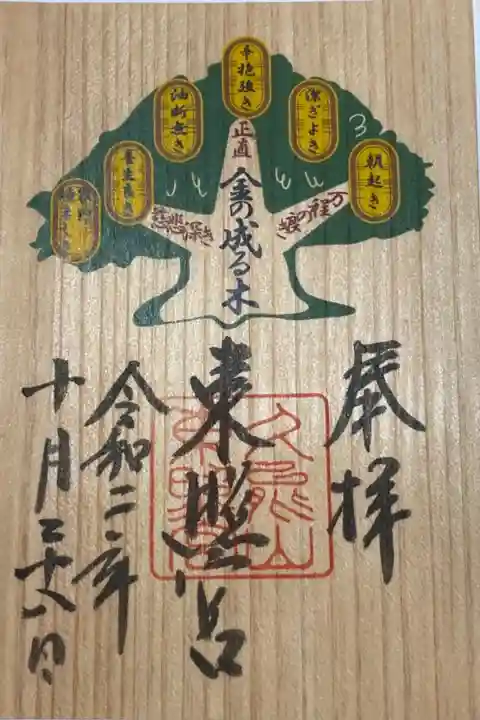 朝起き
潔ぎよき
辛抱強き
油断無き
養生
正直
万程の
慈悲深き
金の成る木
奉拝
東照宮
久能山
東照宮
令和二年
十月二十八日